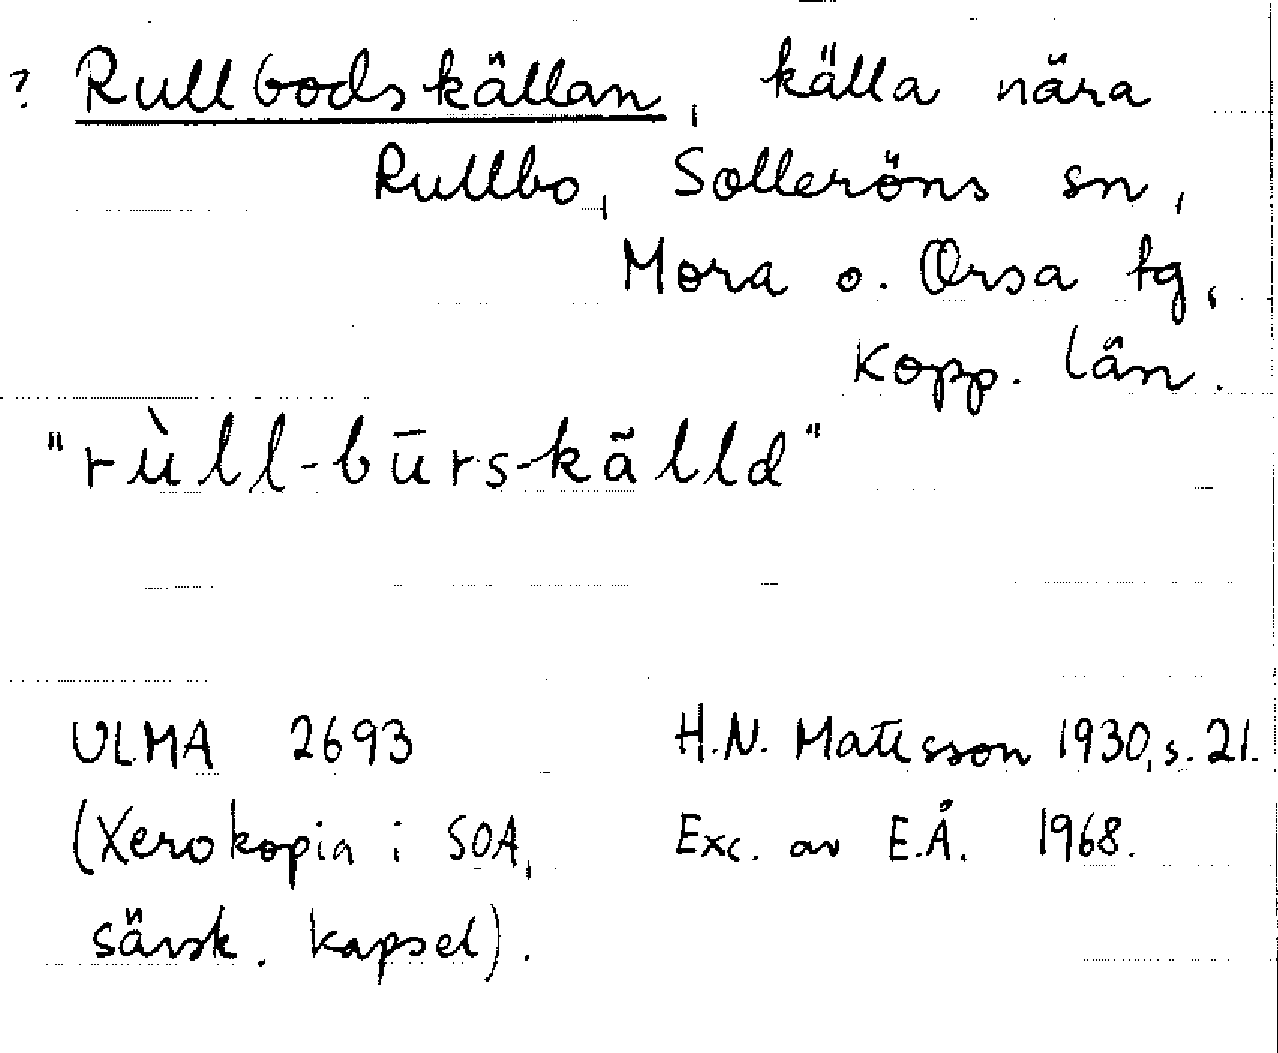 ? Rullbodskällan, källa nära
Rullbo, Solleröns sn,
Mora o. Orsa tg,
Kopp. län.
"rùll-būrs-källd"
ULMA 2693 H.N. Mattsson 1930, s. 21.
(Xerokopia i SOA, Exc. av E.Å. 1968.
särsk. kapsel).